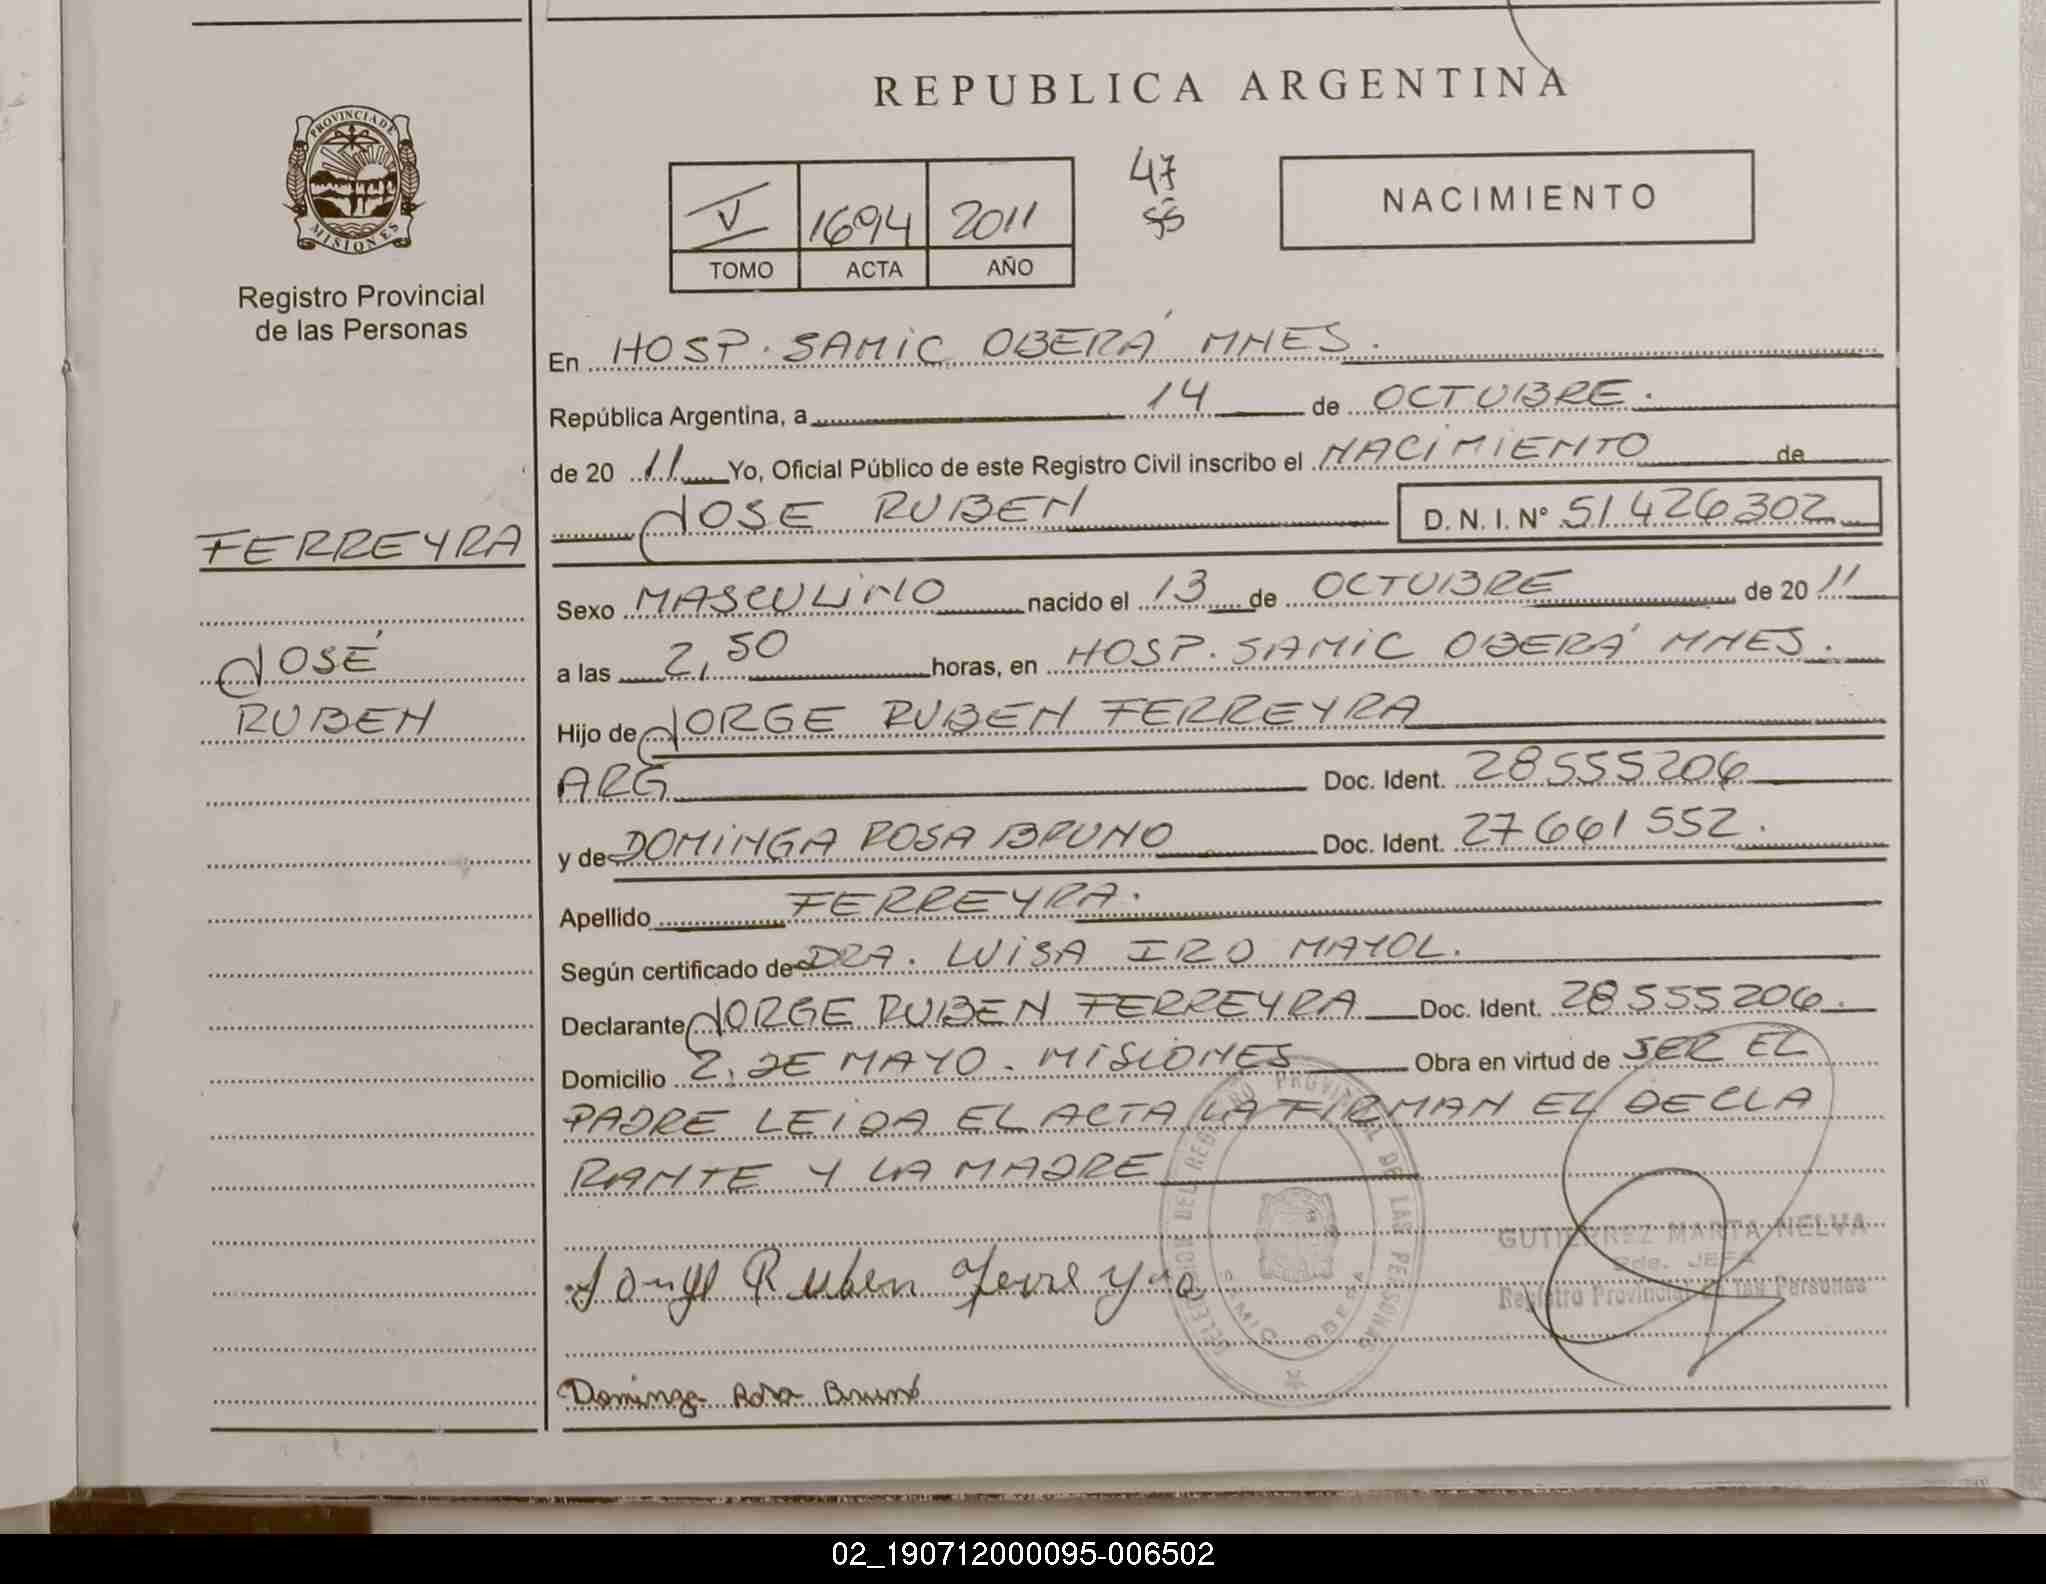 REPUBLICA ARGENTINA
PROVINCIA DE
MISIONES
Registro Provincial
de las Personas
V 1694 2011
TOMO ACTA AÑO
47
55
NACIMIENTO
En HOSP. SAMIC OBERÁ MNES.
República Argentina, a 14 de OCTUBRE.
de 20 11 Yo, Oficial Público de este Registro Civil inscribo el NACIMIENTO de
JOSE RUBEN D.N.I. N° 51426302
FERREYRA
JOSÉ
RUBEN
Sexo MASCULINO nacido el 13 de OCTUBRE de 20 11
a las 2,50 horas, en HOSP. SAMIC OBERÁ MNES.
Hijo de JORGE RUBEN FERREYRA
ARG Doc. Ident. 28555206
y de DOMINGA ROSA BRUNO Doc. Ident. 27661552.
Apellido FERREYRA.
Según certificado de DRA. LUISA IRO MAYOL.
Declarante JORGE RUBEN FERREYRA Doc. Ident. 28555206.
Domicilio 2, DE MAYO. MISIONES Obra en virtud de SER EL
PADRE LEIDA EL ACTA LA FIRMAN EL DECLA
RANTE Y LA MADRE
DEL REGISTRO PROVINCIAL DE LAS PERSONAS
SAMIC OBERA
GUTIERREZ MARTA NELVA
Registro Provincial de las Personas
Jorge Ruben Ferreyra
Dominga Rosa Bruno
02_190712000095-006502